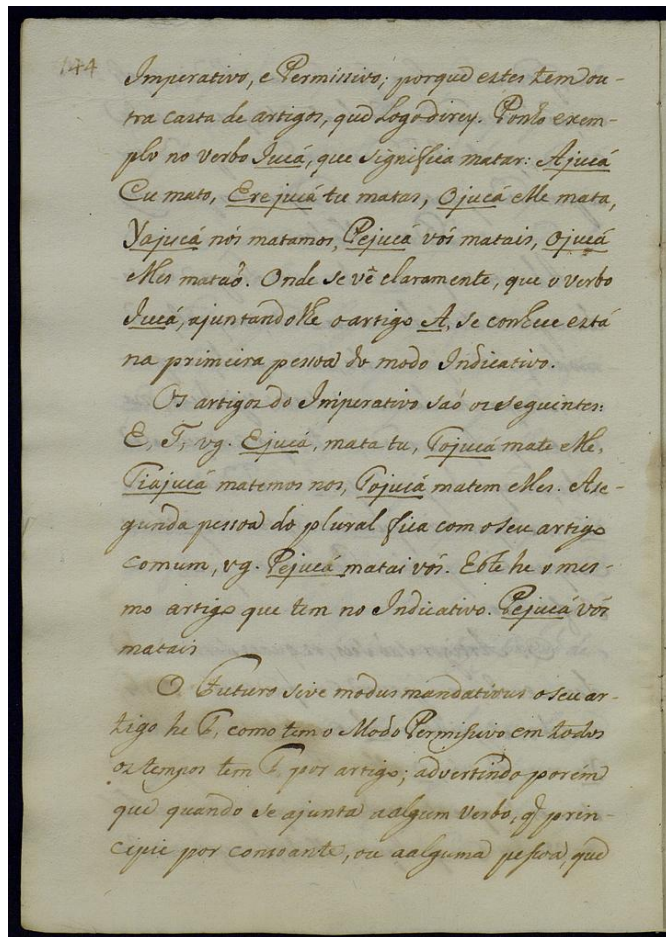 144
Imperativo, e Permissivo; porque estes tem ou-
tra casta de artigos, que logo direy. Ponho exem-
plo no verbo Jucá, que significa matar: Ajucá
Eu mato, Erejucá tu matas, Ojucá elle mata,
Yajucá nós matamos, Pejucá vós matais, Ojucá
elles mataõ. Onde se vê claramente, que o verbo
Jucá, ajuntandolhe o artigo A, se conhece está
na primeira pessoa do modo Indicativo.
Os artigos do Imperativo saõ os seguintes:
E, T, vg. Ejucá, mata tu, Tojucá mate elle,
Tiajucá matemos nos, Tojucá matem elles. Ase-
gunda pessoa do plural fica com o seu artigo
comum, vg. Pejucá matai vós. Este he o mes-
mo artigo que tem no Indicativo. Pejucá vós
matais
O Futuro sive modus mandativus o seu ar-
tigo he T, como tem o Modo Permissivo em todos
os tempos tem T por artigo; advertindo porém
que quando se ajunta a algum verbo, q̃ prin-
cipie por consoante, ou a alguma pessoa, que